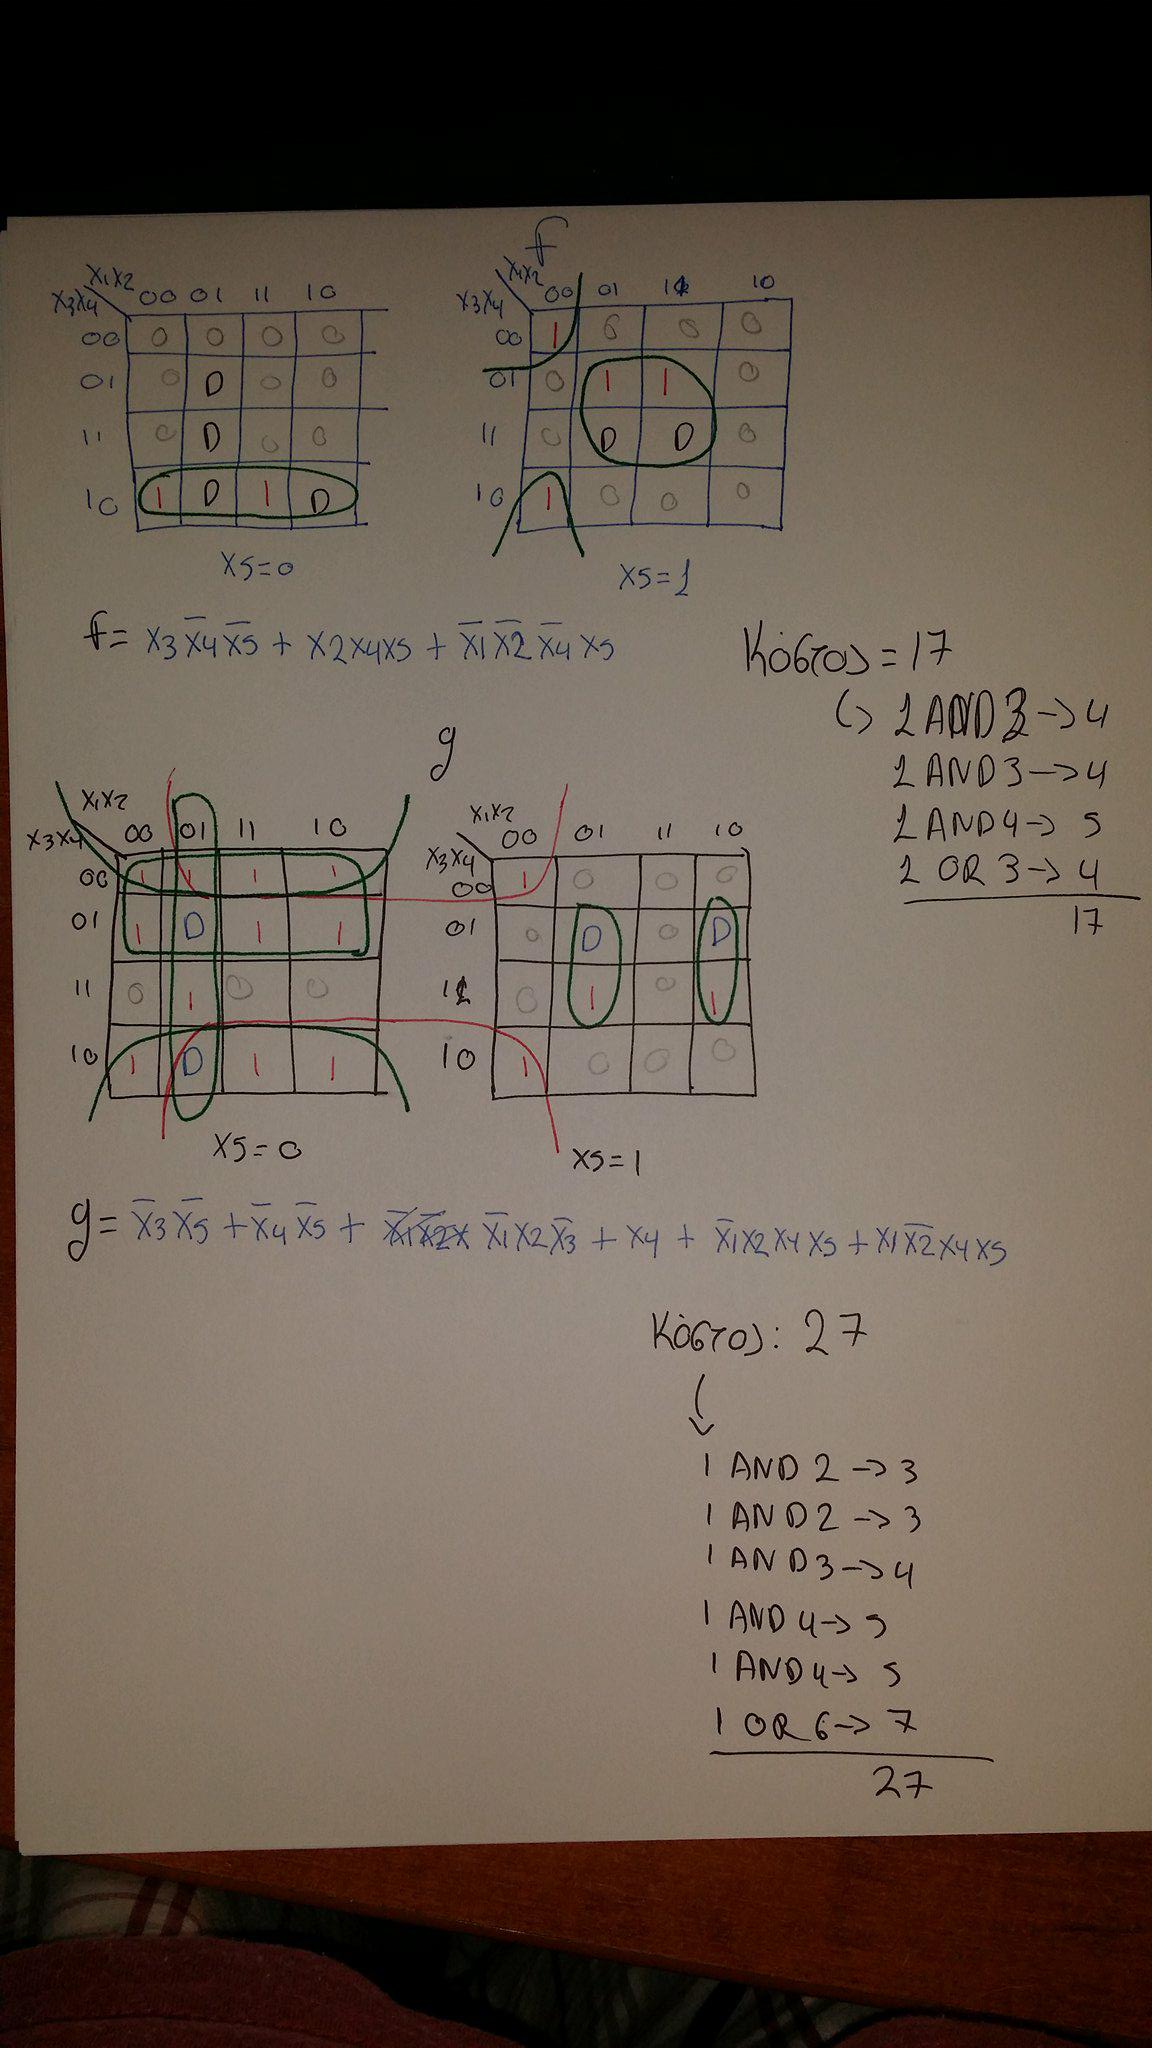 f
x1x2
x3x4 00 01 11 10
00 0 0 0 0
01 0 D 0 0
11 0 D 0 0
10 1 D 1 D
x5=0
x1x2
x3x4 00 01 11 10
00 1 0 0 0
01 0 1 1 0
11 0 D D 0
10 1 0 0 0
x5=1
f= x3x̅4x̅5 + x2x4x5 + x̅1x̅2x̅4x5
Κόστος = 17
↳ 1 AND 3 → 4
1 AND 3 → 4
1 AND 4 → 5
1 OR 3 → 4
17
g
x1x2
x3x4 00 01 11 10
00 1 1 1 1
01 1 D 1 1
11 0 1 0 0
10 1 D 1 1
x5=0
x1x2
x3x4 00 01 11 10
00 1 0 0 0
01 0 D 0 D
11 0 1 0 1
10 1 0 0 0
x5=1
g= x̅3x̅5 + x̅4x̅5 + x̅1x2x̅3 + x4 + x̅1x2x4x5 + x1x̅2x4x5
Κόστος: 27
1 AND 2 → 3
1 AND 2 → 3
1 AND 3 → 4
1 AND 4 → 5
1 AND 4 → 5
1 OR 6 → 7
27